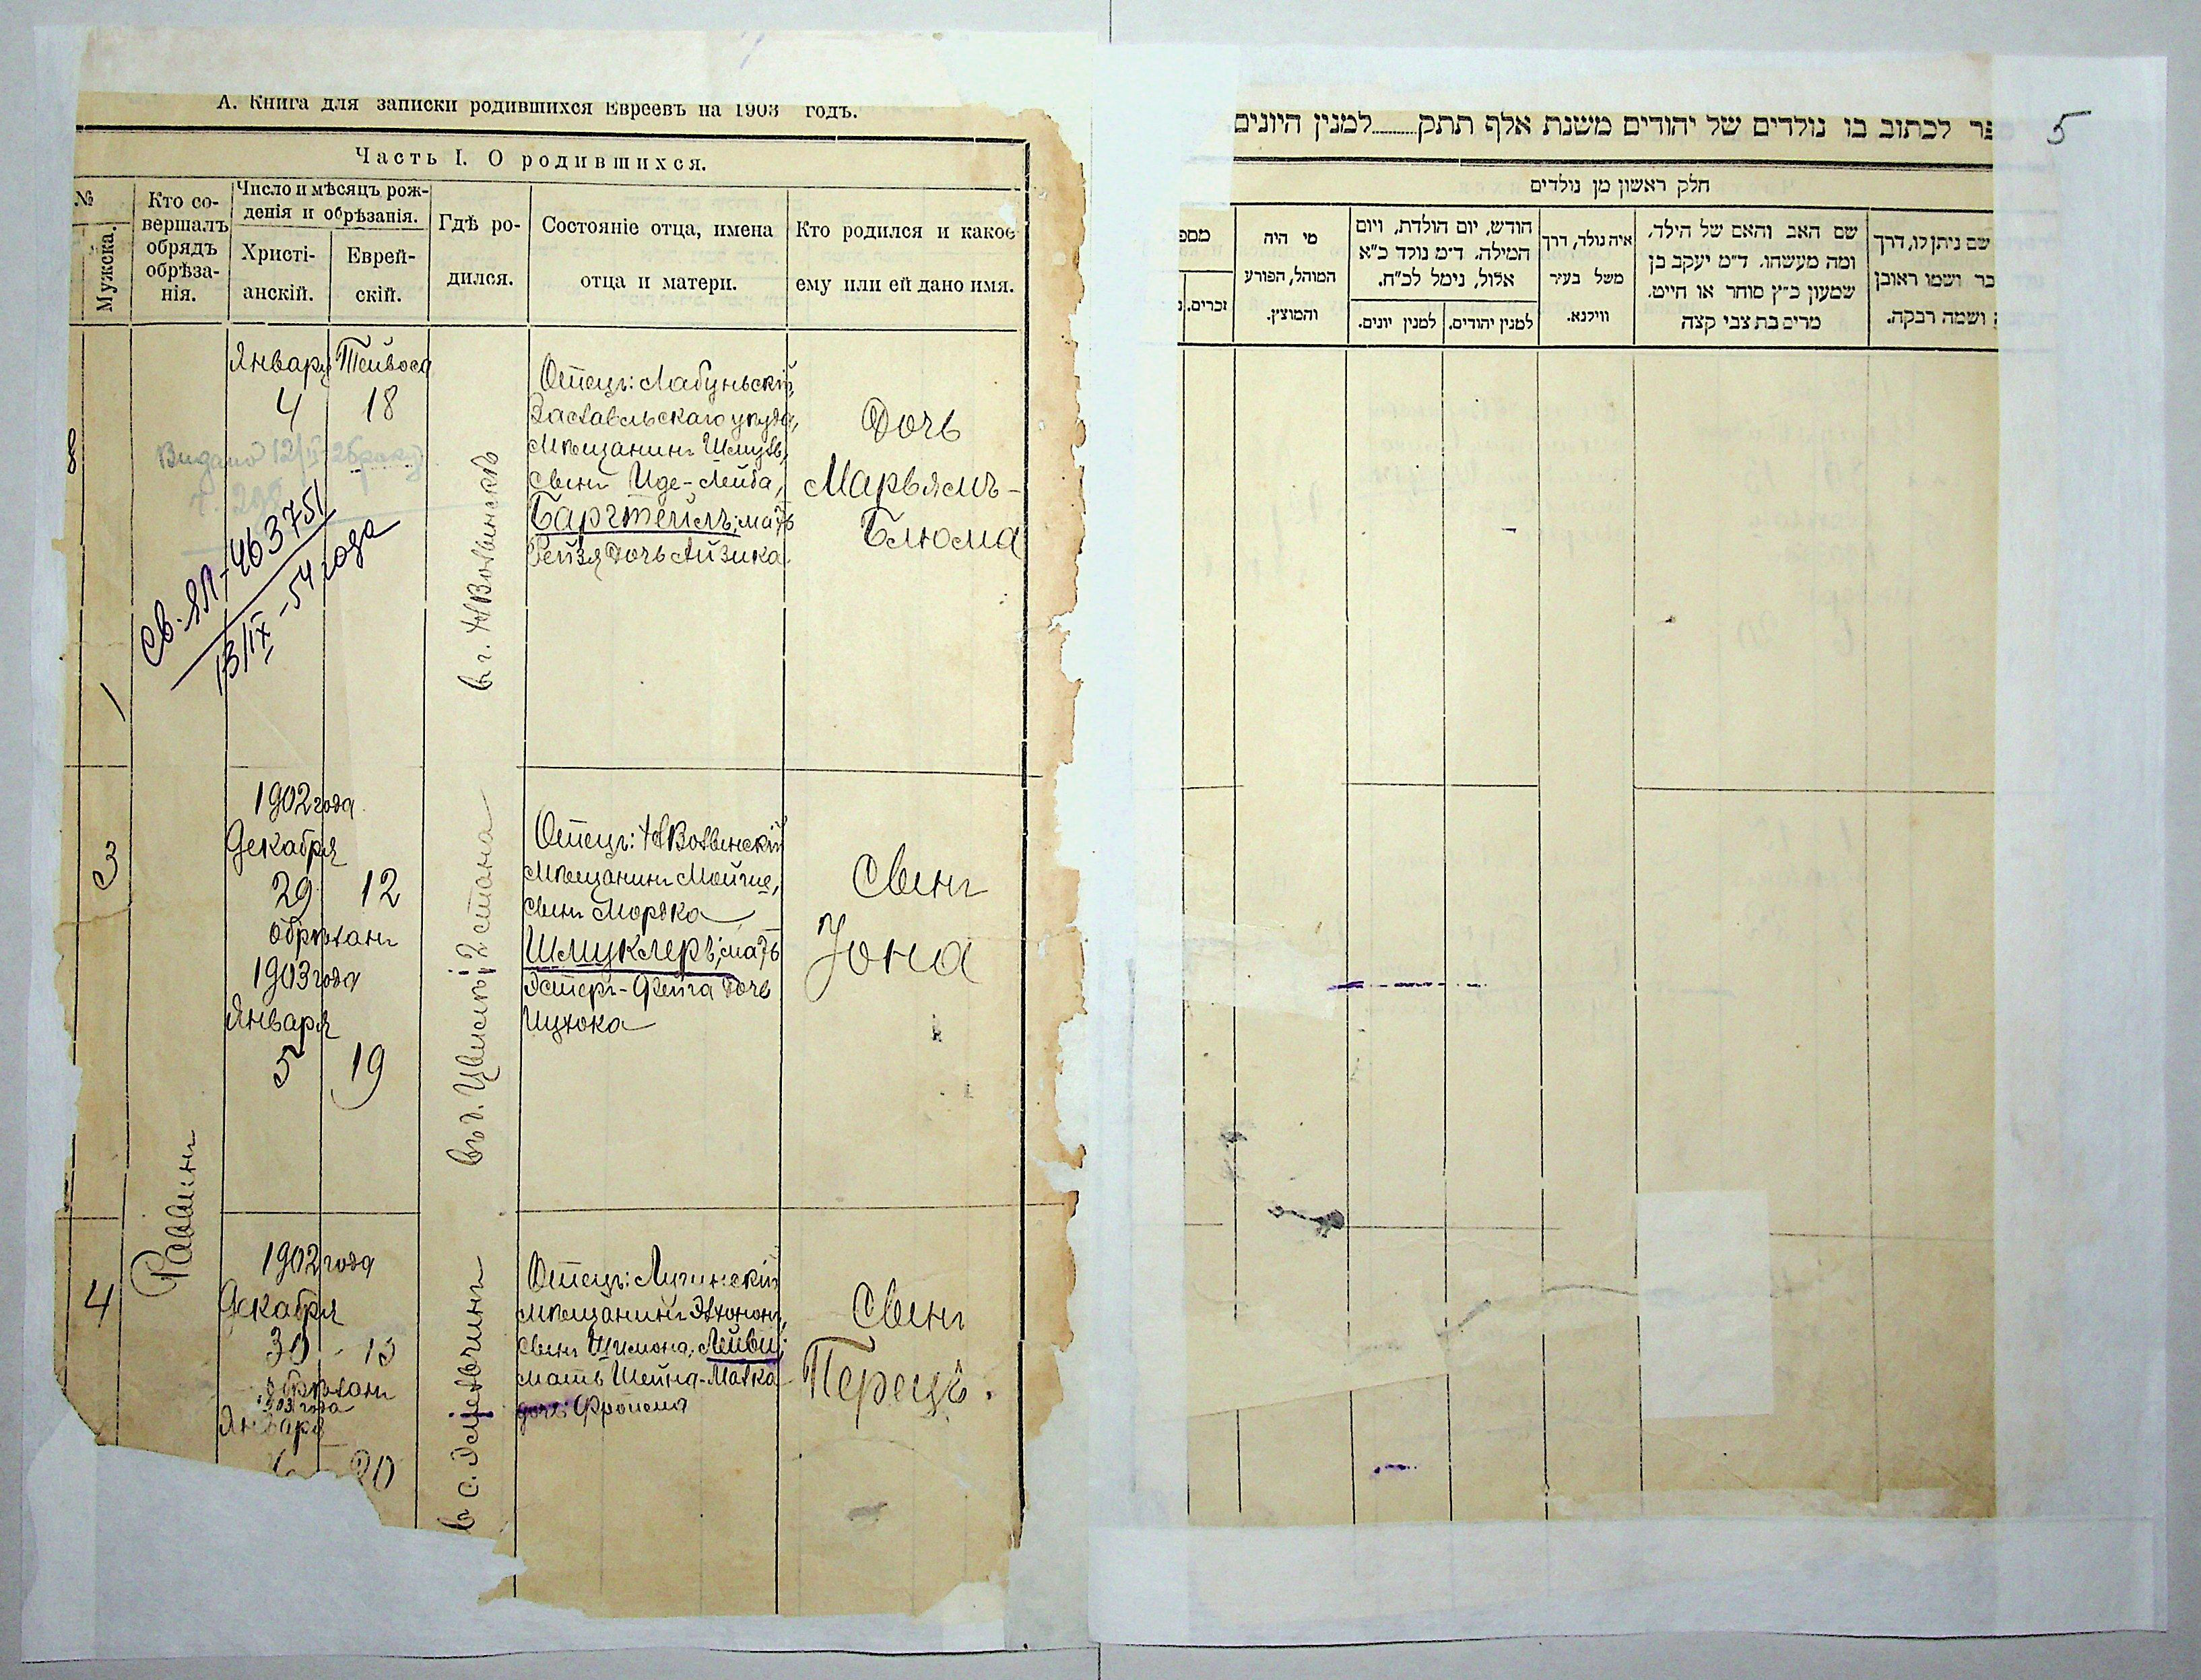 А. Книга для записки родившихся Евреевъ на 1903 годъ.
Часть I. О родившихся.
№
Мужска.
Кто со-
вершалъ
обрядъ
обрѣза-
нія.
Число и мѣсяцъ рож-
денія и обрѣзанія.
Христі-
анскій.
Еврей-
скій.
Гдѣ ро-
дился.
Состояніе отца, имена
отца и матери.
Кто родился и какое
ему или ей дано имя.
8
1
Января
4
Тейвоса
18
Видано 12/II 26 року
Св. ЯЛ-463751
13/IX-54 года
Отецъ: Лабуньскій,
Заславльскаго уѣзда,
мѣщанинъ Шмуль,
сынъ Иде-Лейба,
Баргтейлъ; мать
Рейзя дочь Айзика.
Дочь
Марьямъ-
Блюма
3
1902 года
Декабря
29 12
обрѣзанъ
1903 года
Января
5 19
Отецъ:
мѣщанинъ Мойше,
сынъ Мордко
Шмуклеръ; мать
Эстеръ-Фейга дочь
Ицхока
Сынъ
Іона
Раввинъ
4
1902 года
Декабря
30 - 13
обрѣзанъ
1903 года
Января
20
Отецъ: Лугинскій
мѣщанинъ Эльхононъ,
сынъ Шимона, Лейви;
мать Шейна-Малка
дочь Фроима
Сынъ
Перецъ.
5
ספר לכתוב בו נולדים של יהודים משנת אלף תתק........למנין היונים
חלק ראשון מן נולדים
מספ
זכרים.
מי היה
המוהל, הפורע
והמוצץ.
חודש, יום הולדת, ויום
המילה. ד״מ נולד כ״א
אלול, נימל לכ״ח.
למנין יונים.
למנין יהודים.
איה נולד, דרך
משל בעיר
ווילנא.
שם האב והאם של הילד,
ומה מעשהו. ד״מ יעקב בן
שמעון כ״ץ סוחר או חייט.
מרים בת צבי קצה
שם ניתן לו, דרך
כר ושמו ראובן
ושמה רבקה.